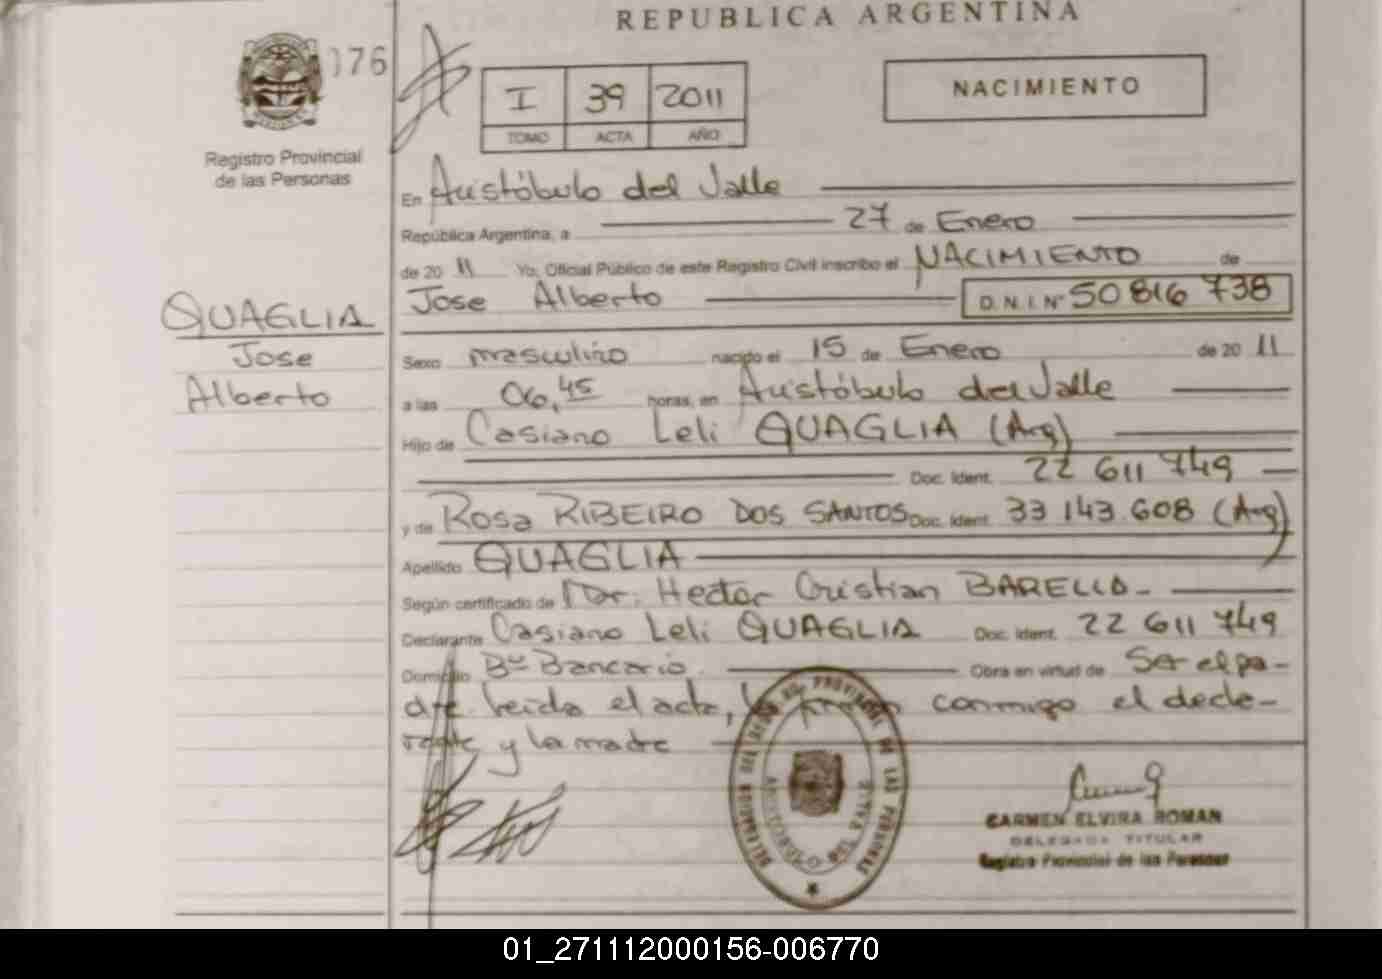 REPUBLICA ARGENTINA
076
I 39 2011
TOMO ACTA AÑO
NACIMIENTO
Registro Provincial
de las Personas
QUAGLIA
Jose
Alberto
En Aristóbulo del Valle
República Argentina, a 27 de Enero
de 20 11 Yo, Oficial Público de este Registro Civil inscribo el NACIMIENTO de
Jose Alberto D.N.I. Nº 50 816 738
Sexo masculino nacido el 15 de Enero de 20 11
a las 06,45 horas, en Aristóbulo del Valle
Hijo de Casiano Leli QUAGLIA (Arg)
Doc. Ident. 22 611 749
y de Rosa RIBEIRO DOS SANTOS Doc. Ident. 33 143 608 (Arg)
Apellido QUAGLIA
Según certificado de Dr. Hector Cristian BARELLO-
Declarante Casiano Leli QUAGLIA Doc. Ident. 22 611 749
Domicilio Bº Bancario Obra en virtud de Ser el pa-
dre leída el acta, la firman conmigo el decla-
rante y la madre
REGISTRO PROVINCIAL DE LAS PERSONAS
ARISTOBULO DEL VALLE
CARMEN ELVIRA ROMAN
DELEGADA TITULAR
Registro Provincial de las Personas
01_271112000156-006770